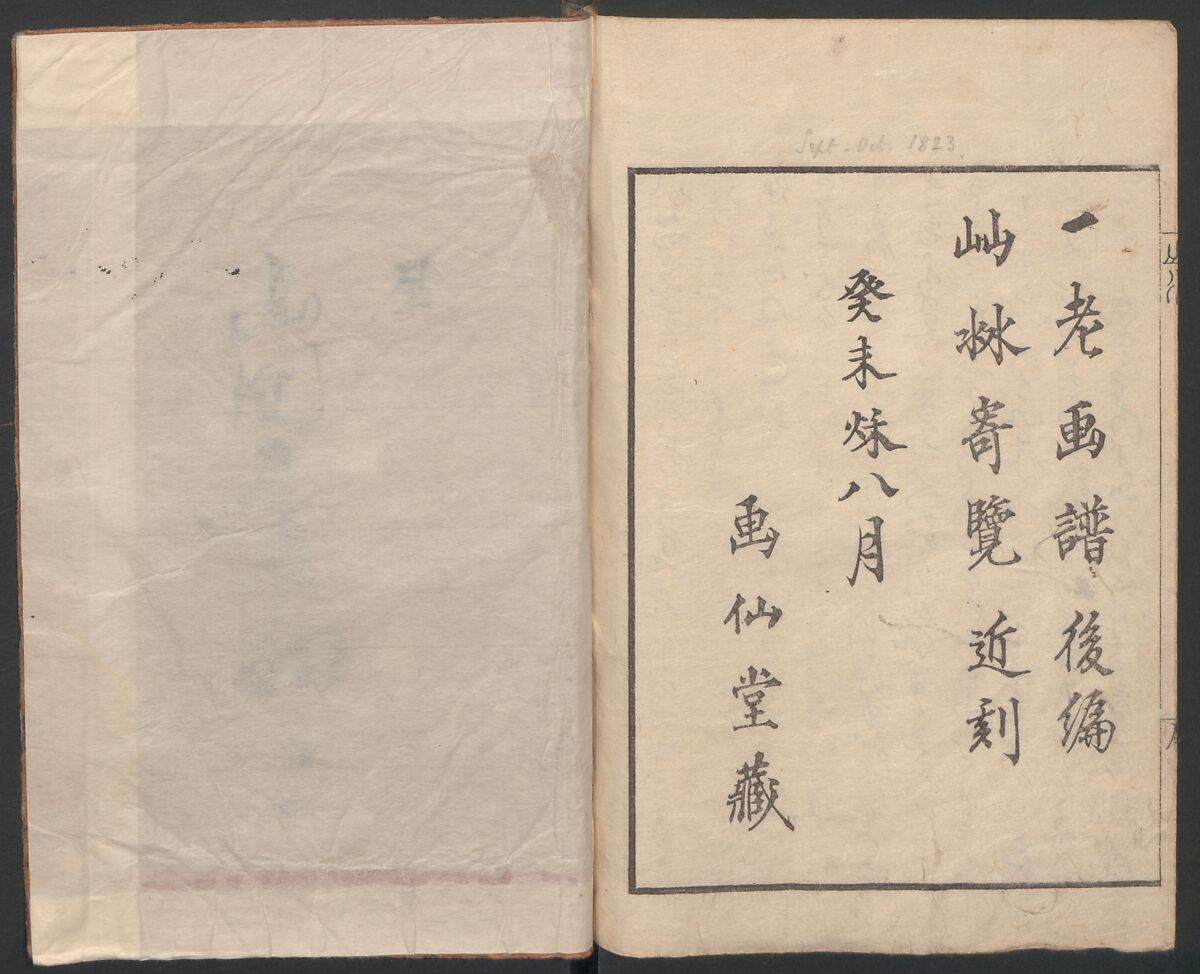 Sept - Oct. 1823.
一老画譜後編
山林寄覽近刻
癸未秌八月
画仙堂藏